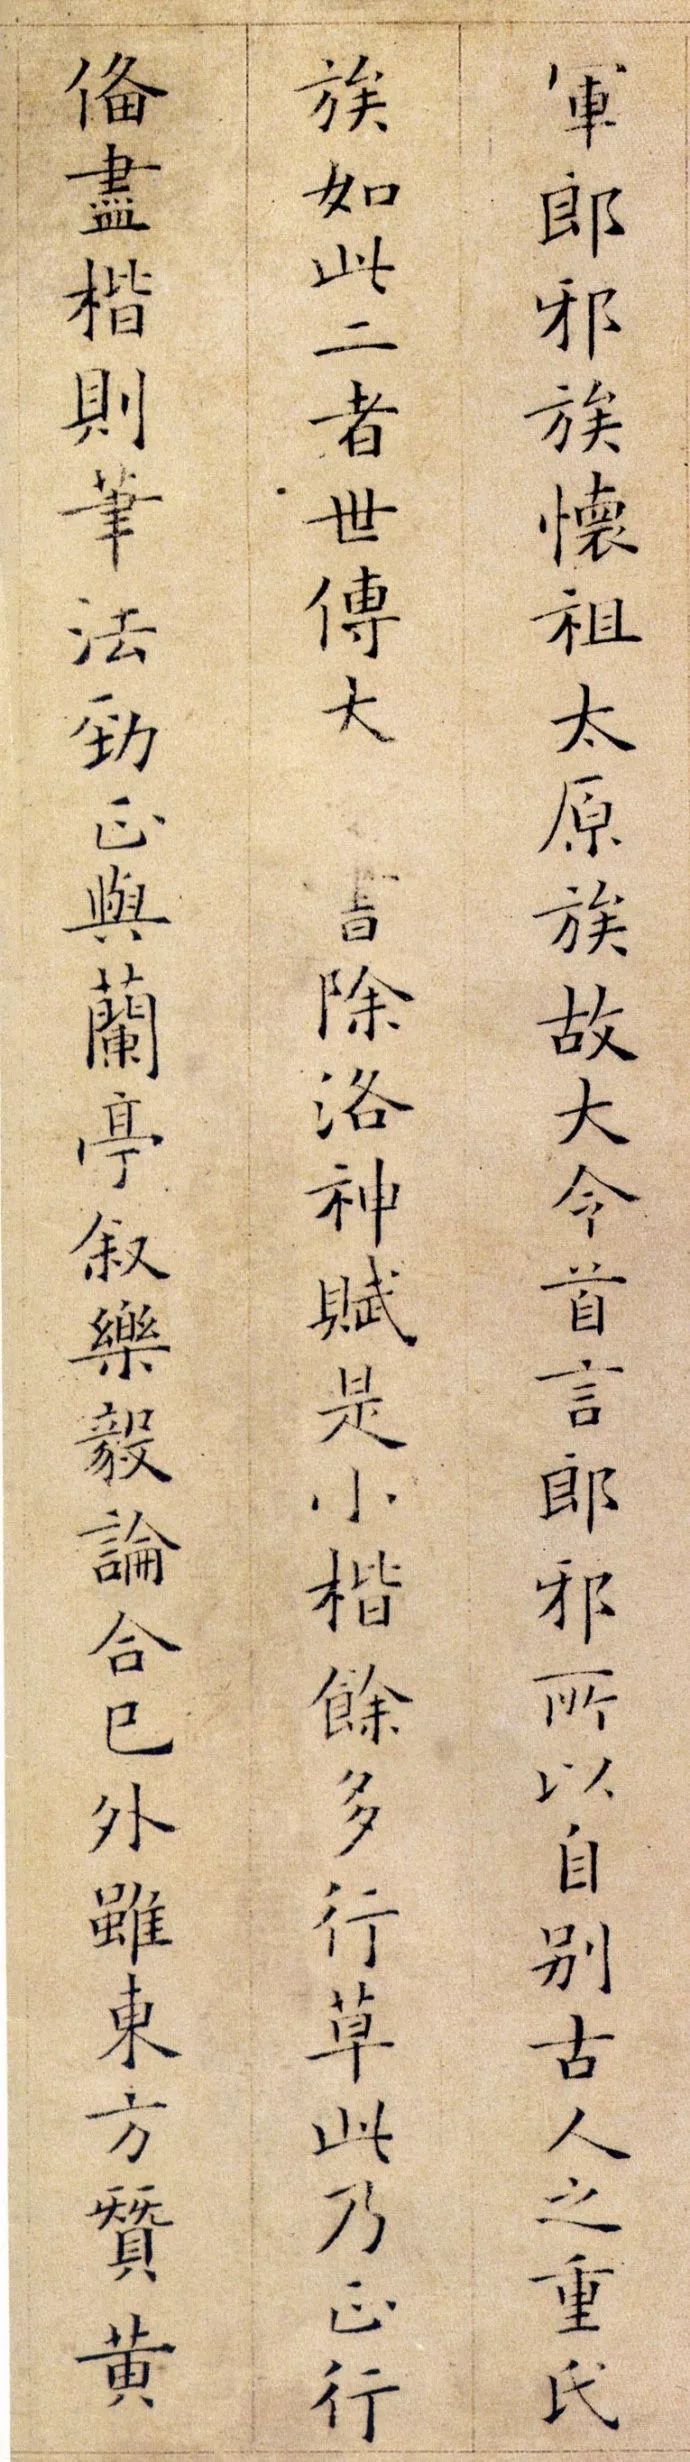 軍郎邪族懷祖太原族故大令首言郎邪所以自別古人之重氏
族如此二者世傳大書除洛神賦是小楷餘多行草此乃正行
俻盡楷則筆法勁正與蘭亭叙樂毅論合已外雖東方贊黄